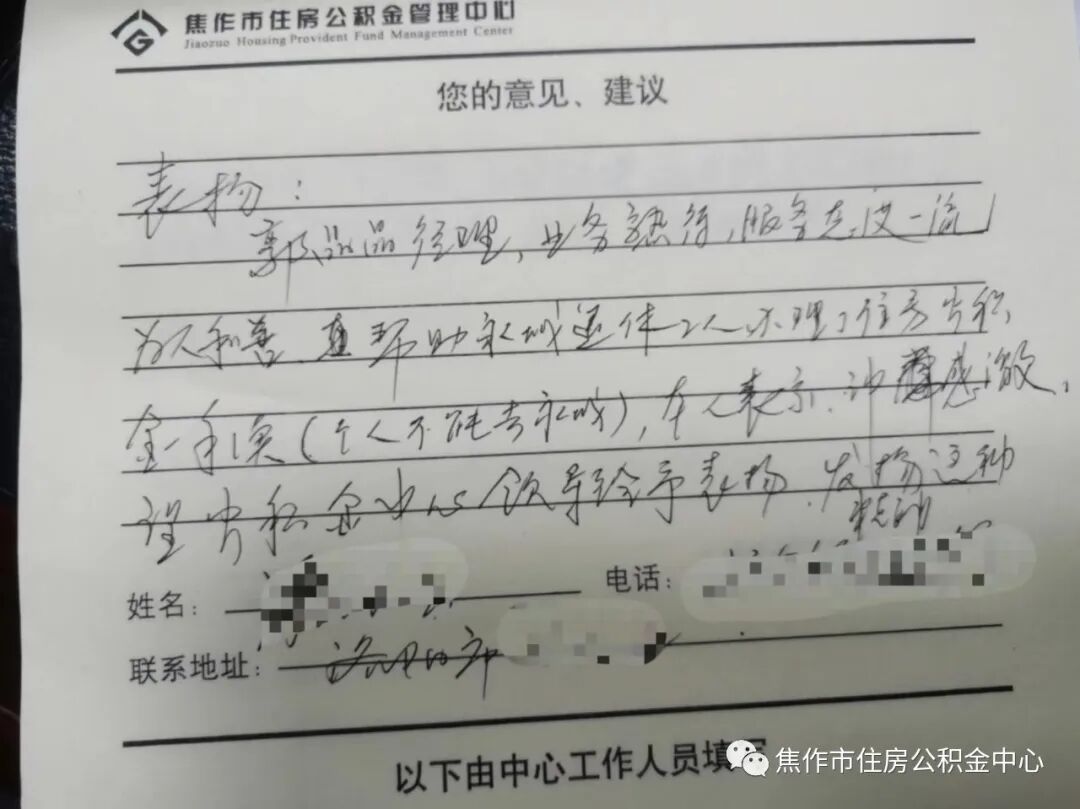 焦作市住房公积金管理中心
Jiaozuo Housing Provident Fund Management Center
您的意见、建议
表扬：
郭品品经理，业务熟悉，服务态度一流
为人和善，帮助永城退休工人办理了住房公积
金手续（个人不能去永城），本人表示衷心感激，
望公积金中心领导给予表扬，发扬这种
精神
姓名：
电话：
联系地址：
以下由中心工作人员填写
焦作市住房公积金中心